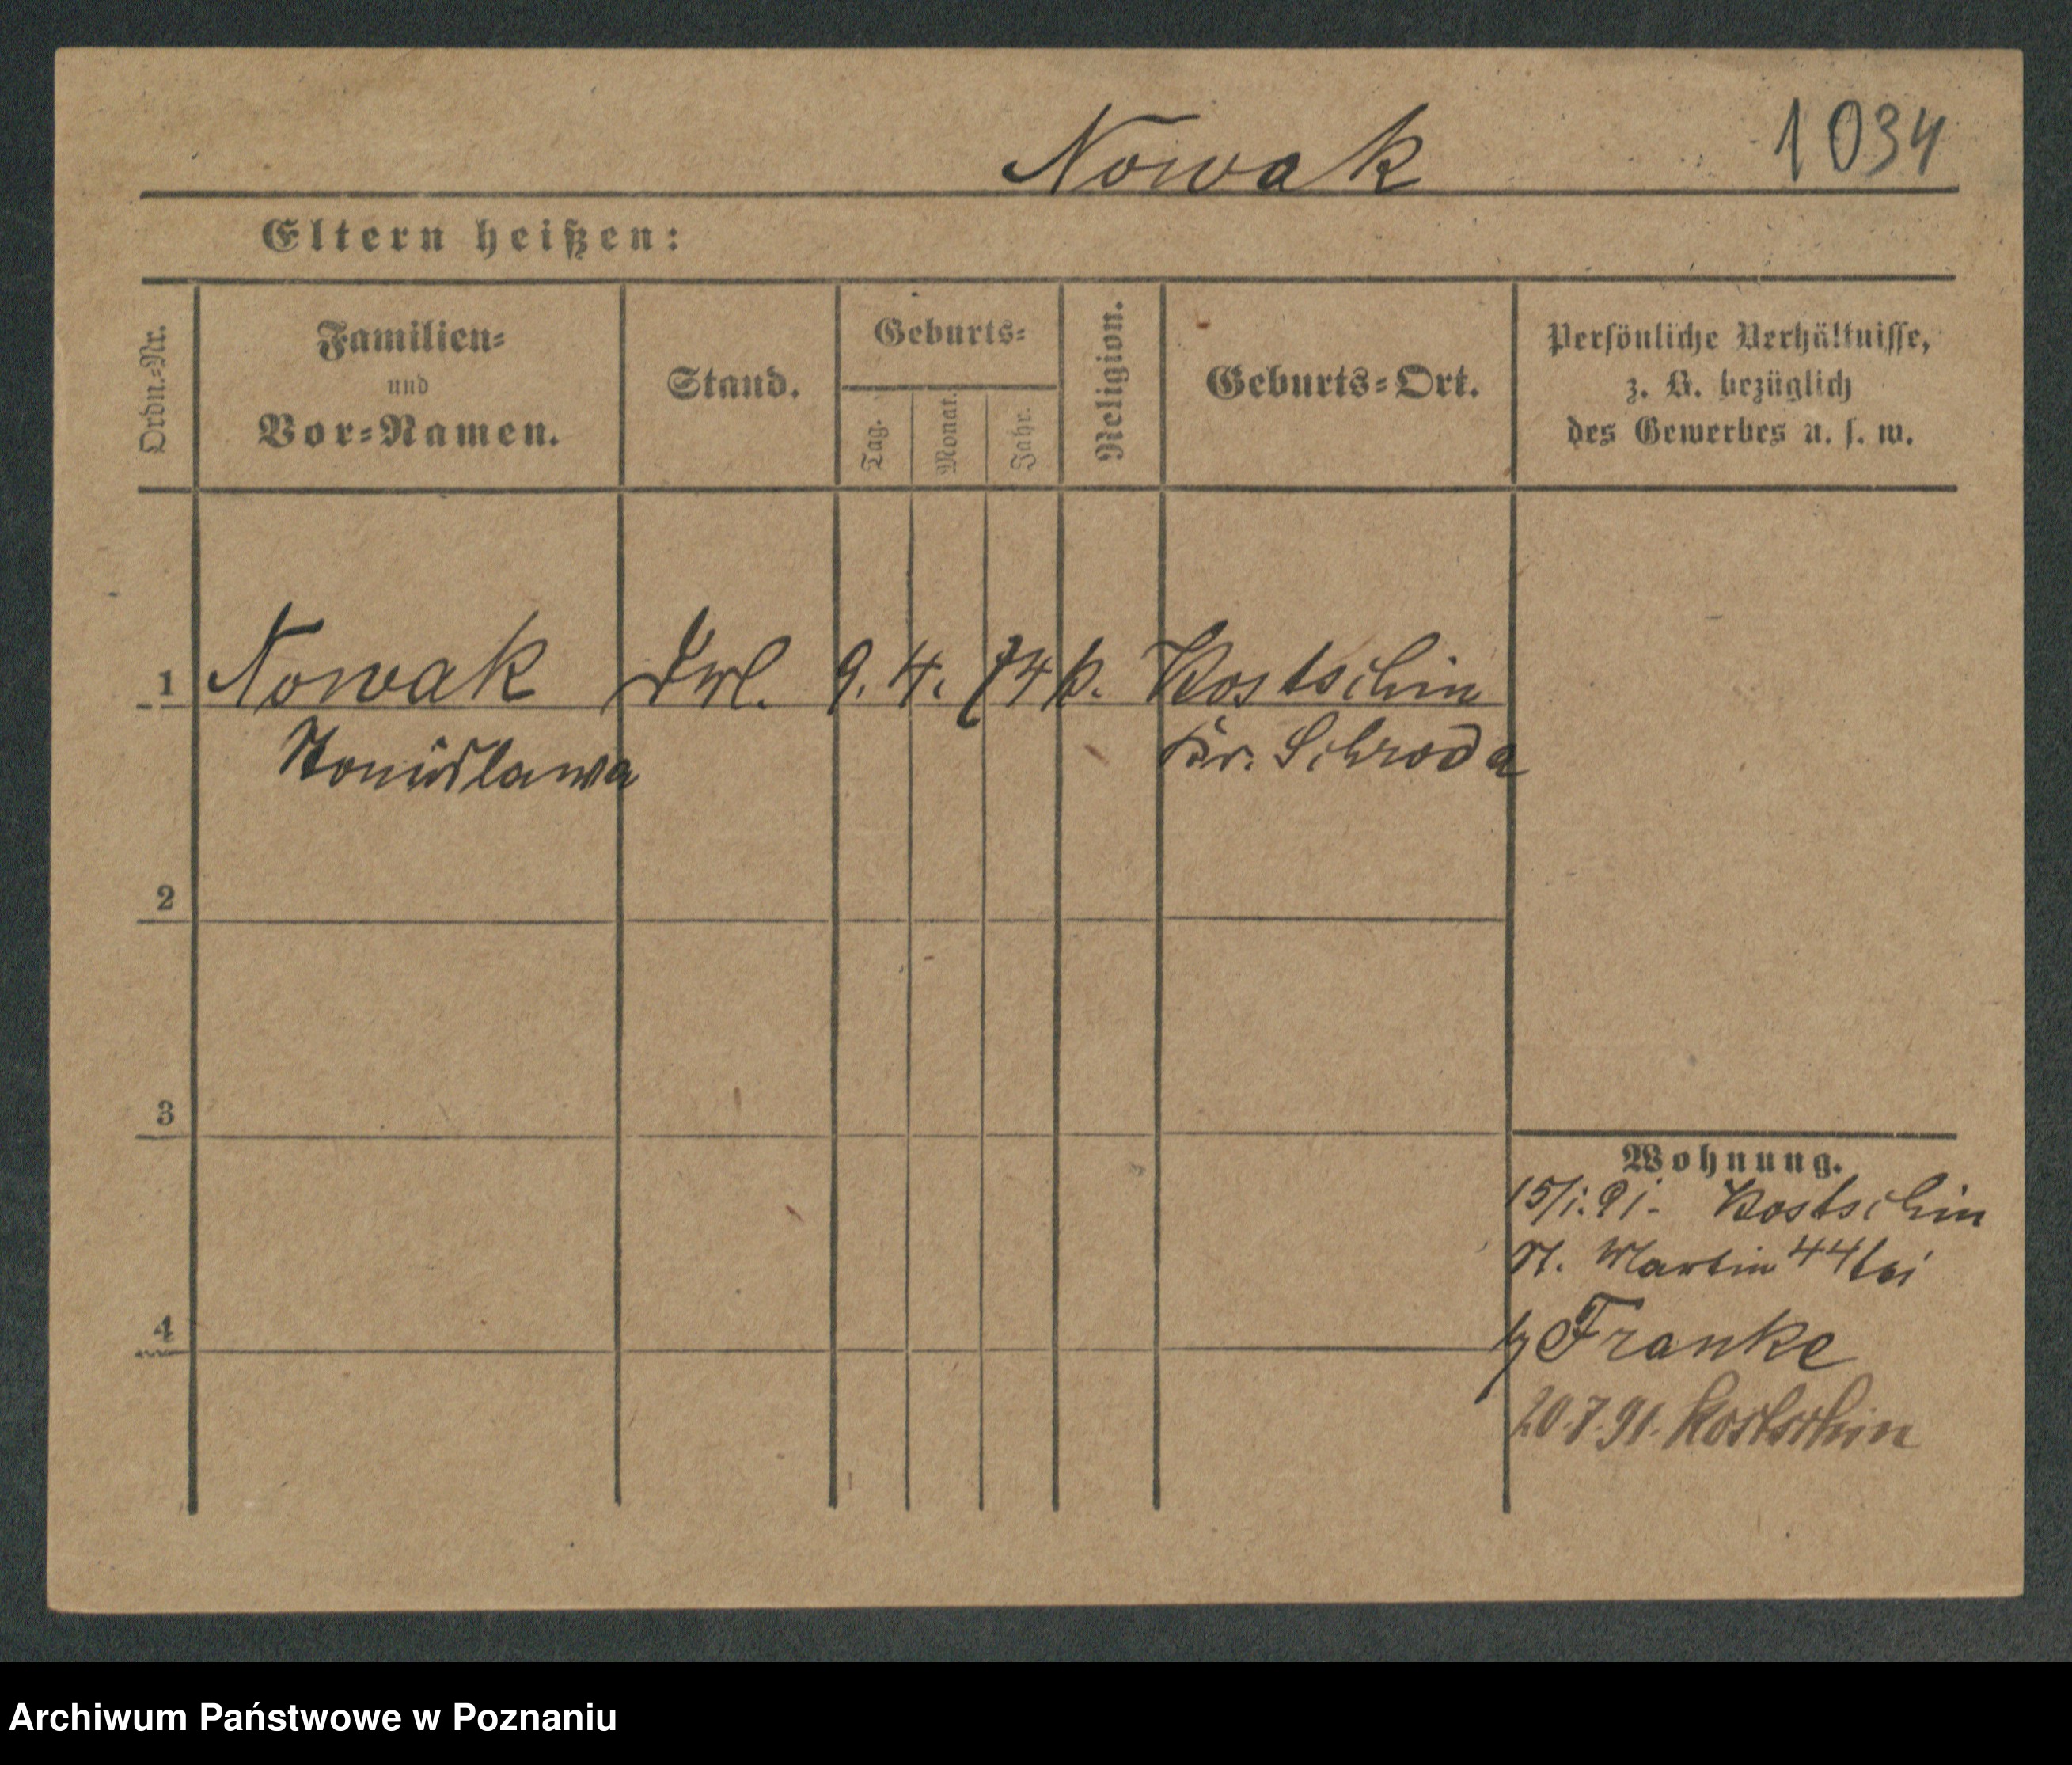 Nowak 1034
Eltern heißen:
Ordn.=Nr.
Familien=
und
Vor=Namen.
Stand.
Geburts=
Tag.
Monat.
Jahr.
Religion.
Geburts=Ort.
Persönliche Verhältnisse,
z. B. bezüglich
des Gewerbes u. s. w.
1 Nowak 9. 4. 74 k. Kostschin
Kr. Schroda
2
3
4
Wohnung.
15/1.91. Kostschin
St. Martin 44 bei
Franke
20.7.91. Kostschin
Archiwum Państwowe w Poznaniu